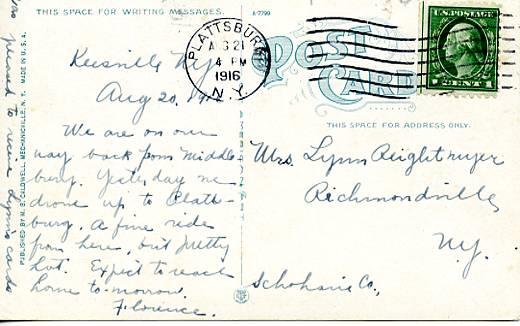 THIS SPACE FOR WRITING MESSAGES.
A-7799
POST CARD
THIS SPACE FOR ADDRESS ONLY.
PLATTSBURG
AUG 21
4 PM
1916
N.Y.
U.S. POSTAGE
1 CENT 1
PUBLISHED BY M. B. CALDWELL, MECHANICVILLE, N. Y. MADE IN U. S. A.
Keesville N.Y.
Aug 20, 1916
We are on our
way back from Middle-
burg. Yesterday we
drove up to Platts-
burg. A fine ride
from here, but pretty
hot. Expect to reach
home to-morrow.
Florence.
Was pleased to receive Lynn's cards
Mrs. Lynn Reightmyer
Richmondville
N.Y.
Schoharie Co.,